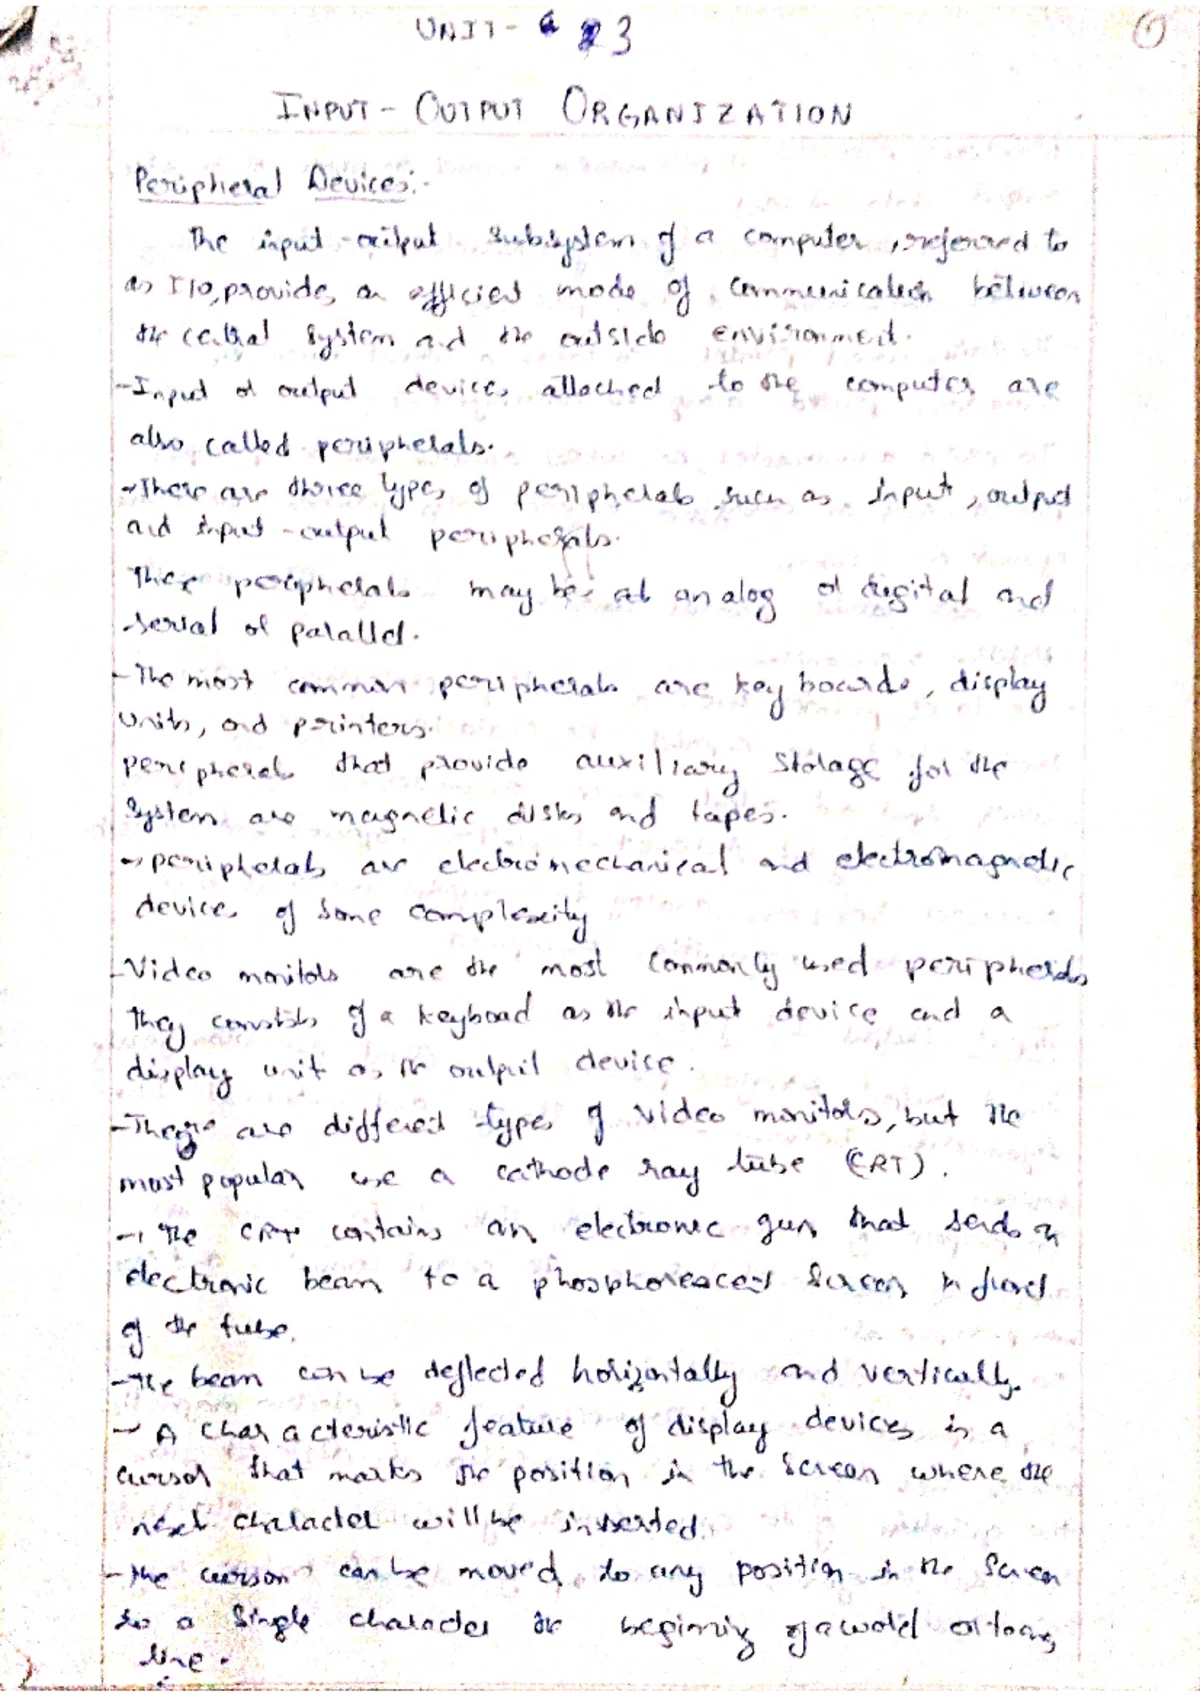 UNIT - 3
INPUT - OUTPUT ORGANIZATION
Peripheral Devices:-
The input-output subsystem of a computer, referred to
as I/O, provides an efficient mode of communication between
the central system and the outside environment.
-Input or output devices attached to the computer are
also called peripherals.
-There are three types of peripherals such as input, output
and input-output peripherals.
These peripherals may be analog or digital and
serial or parallel.
-The most common peripherals are key boards, display
units, and printers.
peripherals that provide auxiliary storage for the
system are magnetic disks and tapes.
-peripherals are electromechanical and electromagnetic
devices of some complexity
-Video monitors are the most commonly used peripherals
they consists of a keyboard as the input device and a
display unit as the output device.
-There are different types of video monitors, but the
most popular use a cathode ray tube (CRT).
- The CRT contains an electronic gun that sends an
electronic beam to a phosphorescent screen in front
of the tube.
-The beam can be deflected horizontally and vertically.
- A characteristic feature of display devices is a
cursor that marks the position in the screen where the
next character will be inserted.
-The cursor can be moved to any position in the screen
to a single character the beginning of a word or to any
line.